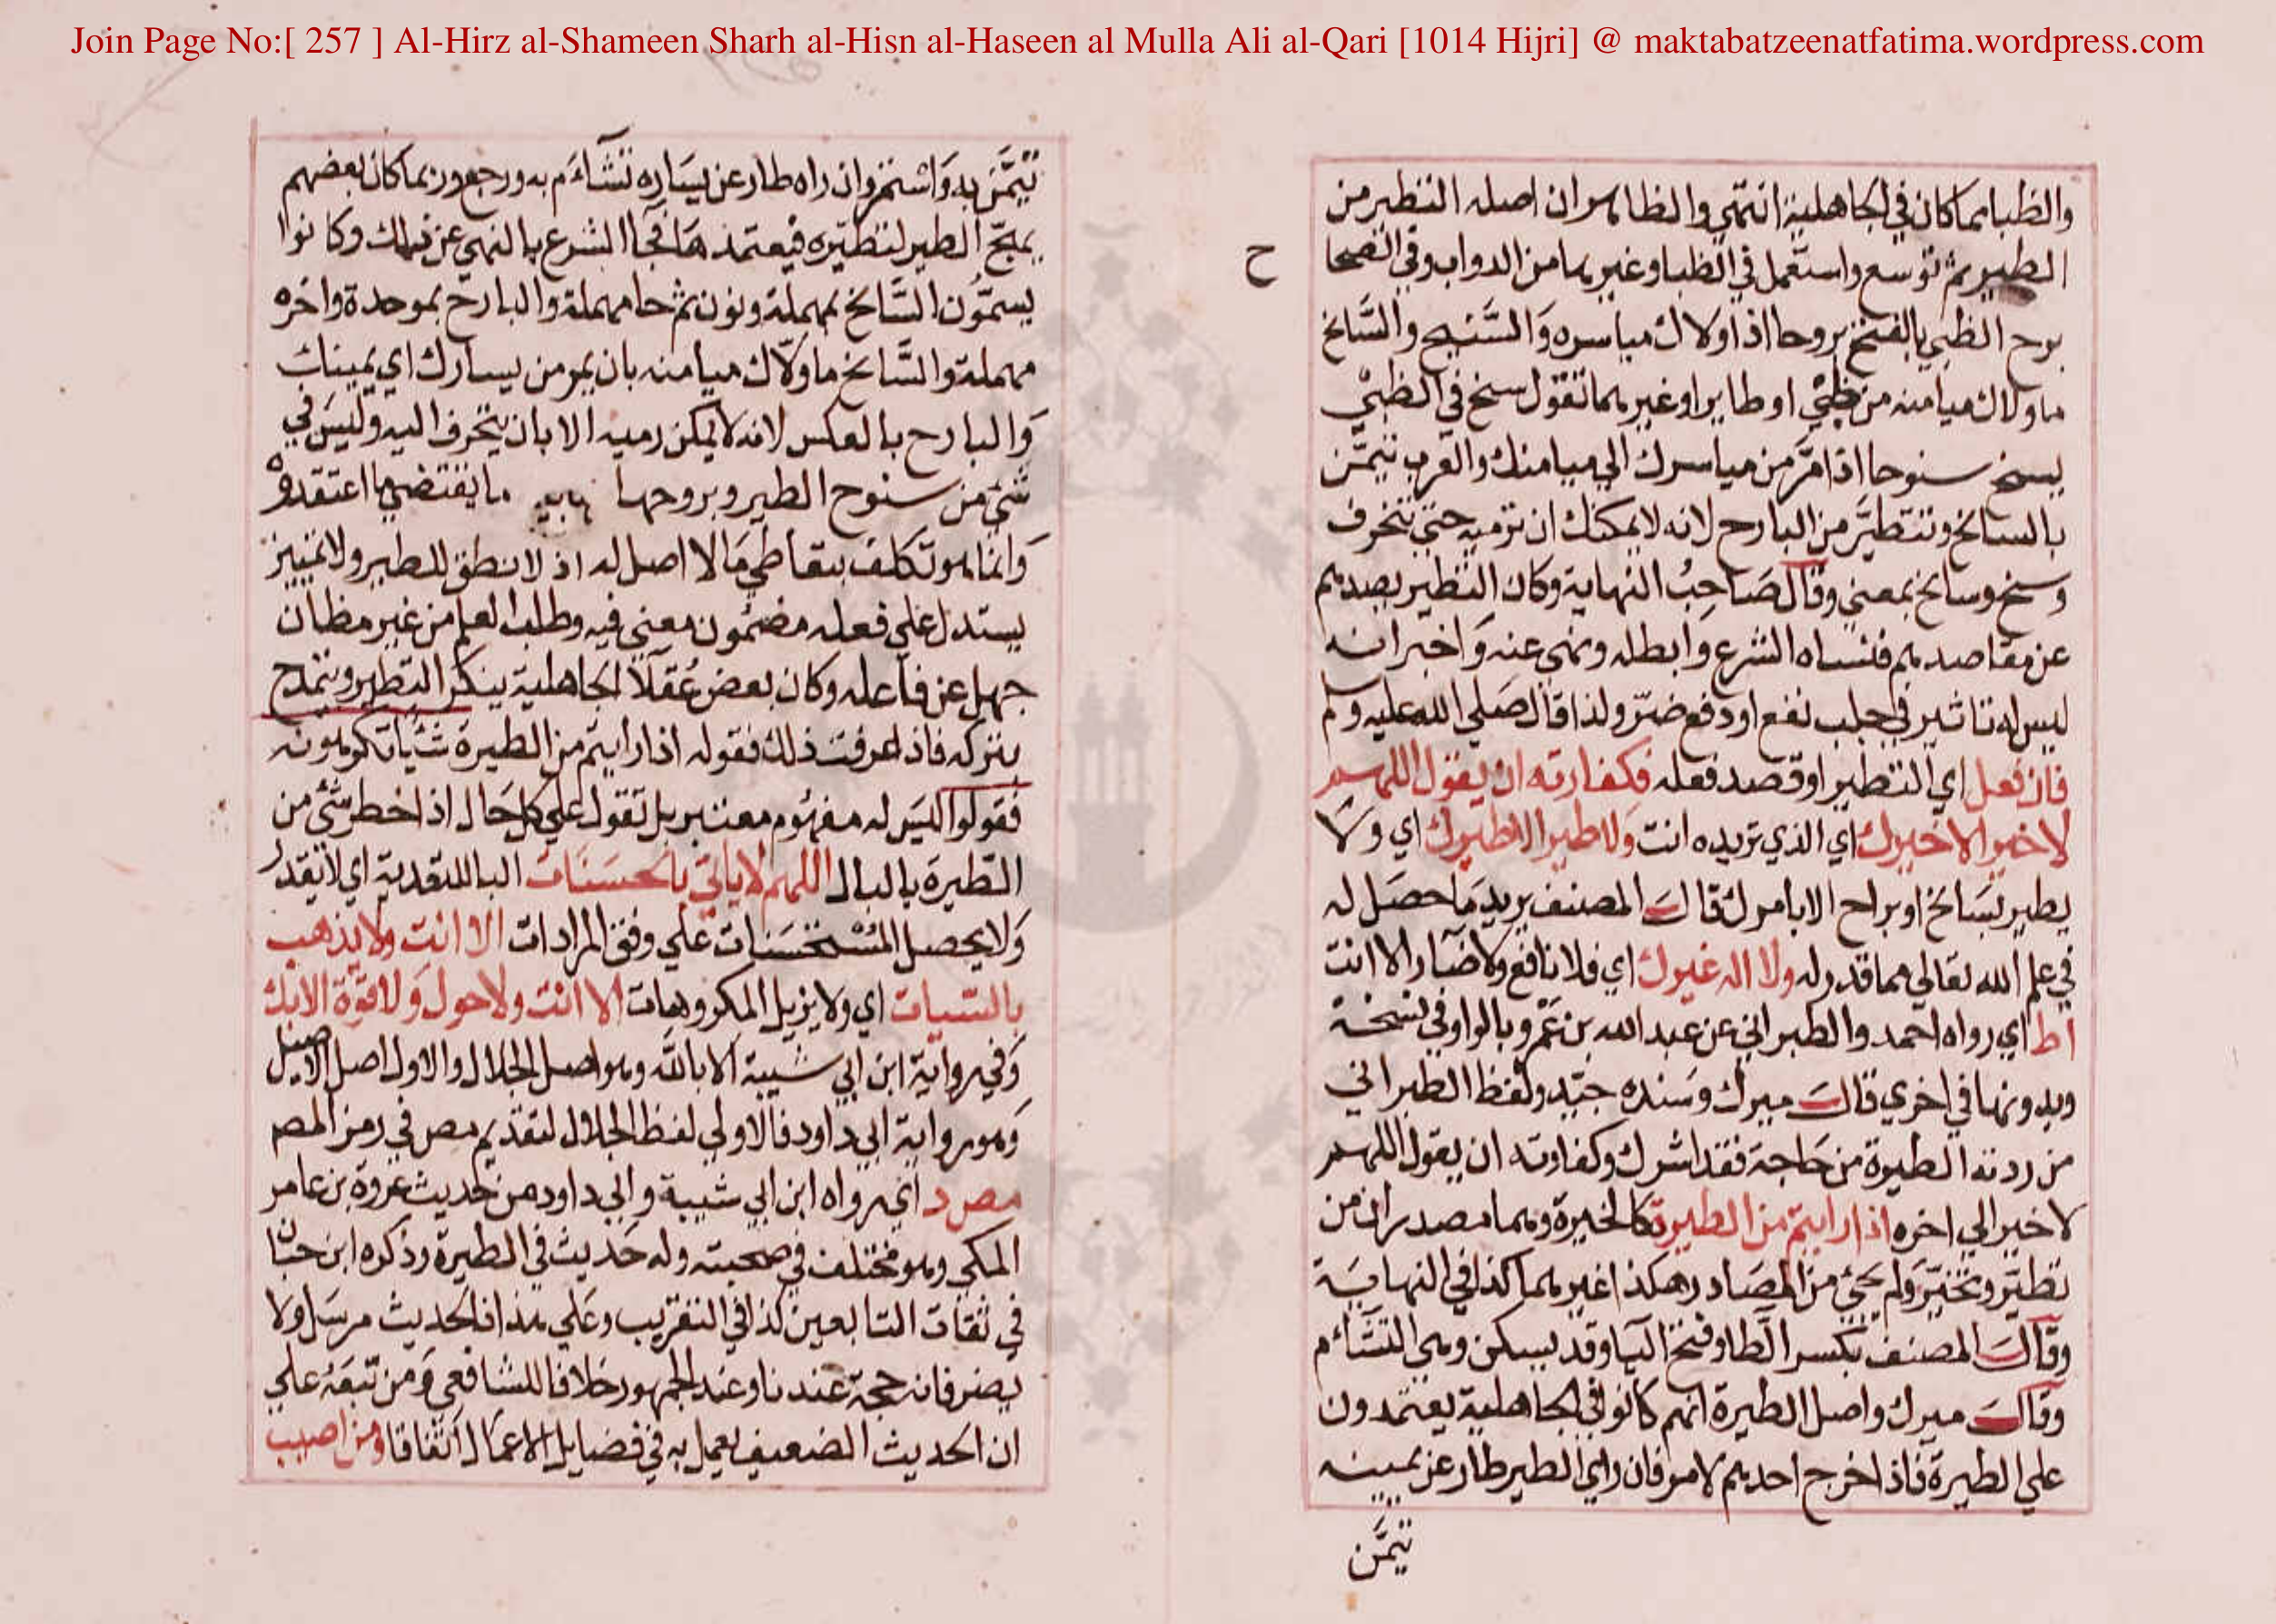 Join Page No:[ 257 ] Al-Hirz al-Shameen Sharh al-Hisn al-Haseen al Mulla Ali al-Qari [1014 Hijri] @ maktabatzeenatfatima.wordpress.com
والظبا مما كان في الجاهلية انتهي والظاهر ان اصله التطير من
الطير ثم توسع واستعمل في الظبا وغيرهما من الدواب وفي الصحا
ح
برح الظبي بالفتح بروحا اذا ولاك مياسره والسنيح والسانح
ما ولاك ميامنه من ظبي او طاير او غيرهما تقول سنح في الظبي
يسنح سنوحا اذا مر من مياسرك الي ميامنك والعرب تتيمن
بالسانح وتتطير من البارح لانه لا يمكنك ان ترميه حتي تنحرف
وسنح وسانح بمعني وقال صاحب النهاية وكان التطير يصدهم
عن مقاصدهم فنفاه الشرع وابطله ونهي عنه واخبر انه
ليس له تاثير في جلب نفع او دفع ضر ولذا قال صلي الله عليه وسلم
فان فعل اي التطير او قصد فعله فكفارته ان يقول اللهم
لا خير الا خيرك اي الذي تريده انت ولا طير الا طيرك اي ولا
يطير بسانح او براح الا بامرك قال المصنف يريد ما حصل له
في علم الله تعالي مما قدر له ولا اله غيرك اي فلا نافع ولا ضار الا انت
اط اي رواه احمد والطبراني عن عبد الله بن عمرو بالواو في نسخة
وبدونها في اخري قال ميرك وسنده جيد ولفظ الطبراني
من ردته الطيرة من حاجة فقد اشرك وكفارته ان يقول اللهم
لا خير الي اخره اذا رايتم من الطيرة كالخيرة وهما مصدران من
تطير وتخير ولم يجئ من المصادر هكذا غيرهما كذا في النهاية
وقال المصنف بكسر الطا وفتح اليا وقد يسكن وهي التشاءم
وقال ميرك واصل الطيرة انهم كانوا في الجاهلية يعتمدون
علي الطيرة فاذا خرج احدهم لامر فان راي الطير طار عن يمينه
تيمن
تيمن به واستمر وان راه طار عن يساره تشاءم به ورجع وربما كان بعضهم
يهيج الطير لتطيره فيعتمدها فجا الشرع بالنهي عن ذلك وكانوا
يسمون السانح بمهملة ونون ثم حا مهملة والبارح بموحدة واخره
مهملة والسانح ما ولاك ميامنه بان يمر من يسارك اي يمينك
والبارح بالعكس لانه لا يمكن رميه الا بان ينحرف اليه وليس في
شئ من سنوح الطير وبروحها ما يقتضي ما اعتقدوه
وانما هو تكلف بتعاطي ما لا اصل له اذ لا نطق للطير ولا تمييز
يستدل علي فعله مضمون معني فيه وطلب العلم من غير مظان
جهل عن فاعله وكان بعض عقلا الجاهلية ينكر التطير ويتمدح
بتركه فاذا عرفت ذلك فقوله اذا رايتم من الطيرة شئيا تكرهونه
فقولوا ليس له مفهوم معتبر بل تقول علي كل حال اذا خطر شئ من
الطيرة بالبال اللهم لا ياتي بالحسنات البا للتعدية اي لا يقدر
ولا يحصل المستحسنات علي وفق المرادات الا انت ولا يذهب
بالسيات اي ولا يزيل المكروهات الا انت ولا حول ولا قوة الا بك
وفي رواية ابن ابي شيبة الا بالله وهو اصل الجلال والاول اصل الاصيل
وهو رواية ابي داود فالاولي لفظ الجلال لتقديم مص في رمز المص
مص د اي رواه ابن ابي شيبة وابي داود من حديث عروة بن عامر
المكي وهو مختلف في صحبته وله حديث في الطيرة وذكره ابن حبان
في ثقات التابعين كذا في التقريب وعلي هذا فالحديث مرسل ولا
يضر فانه حجة عندنا وعند الجمهور خلافا للشافعي ومن تبعه علي
ان الحديث الضعيف يعمل به في فضايل الاعمال اتفاقا ومن اصيب